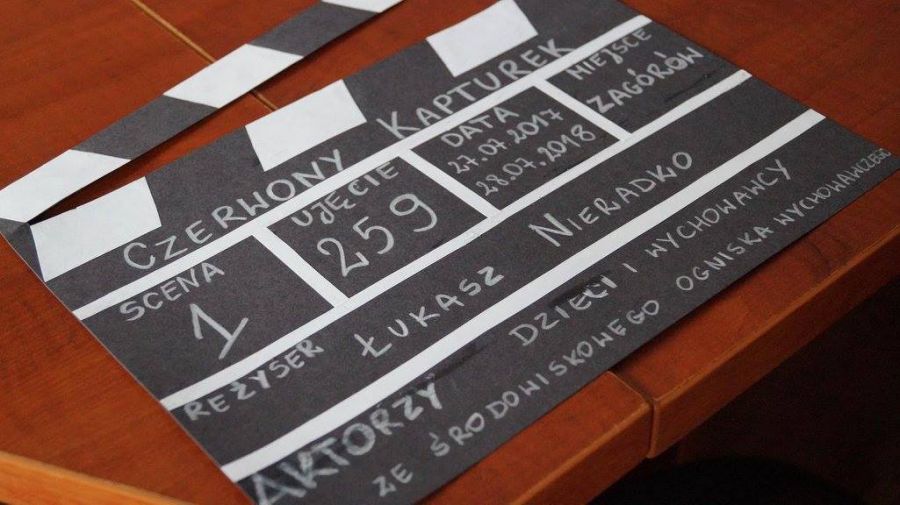 CZERWONY KAPTUREK
SCENA
1
UJĘCIE
259
DATA
27.07.2017
28.07.2018
MIEJSCE
ZAGÓRÓW
REŻYSER ŁUKASZ NIERADKO
AKTORZY DZIECI I WYCHOWAWCY
ZE ŚRODOWISKOWEGO OGNISKA WYCHOWAWCZEGO